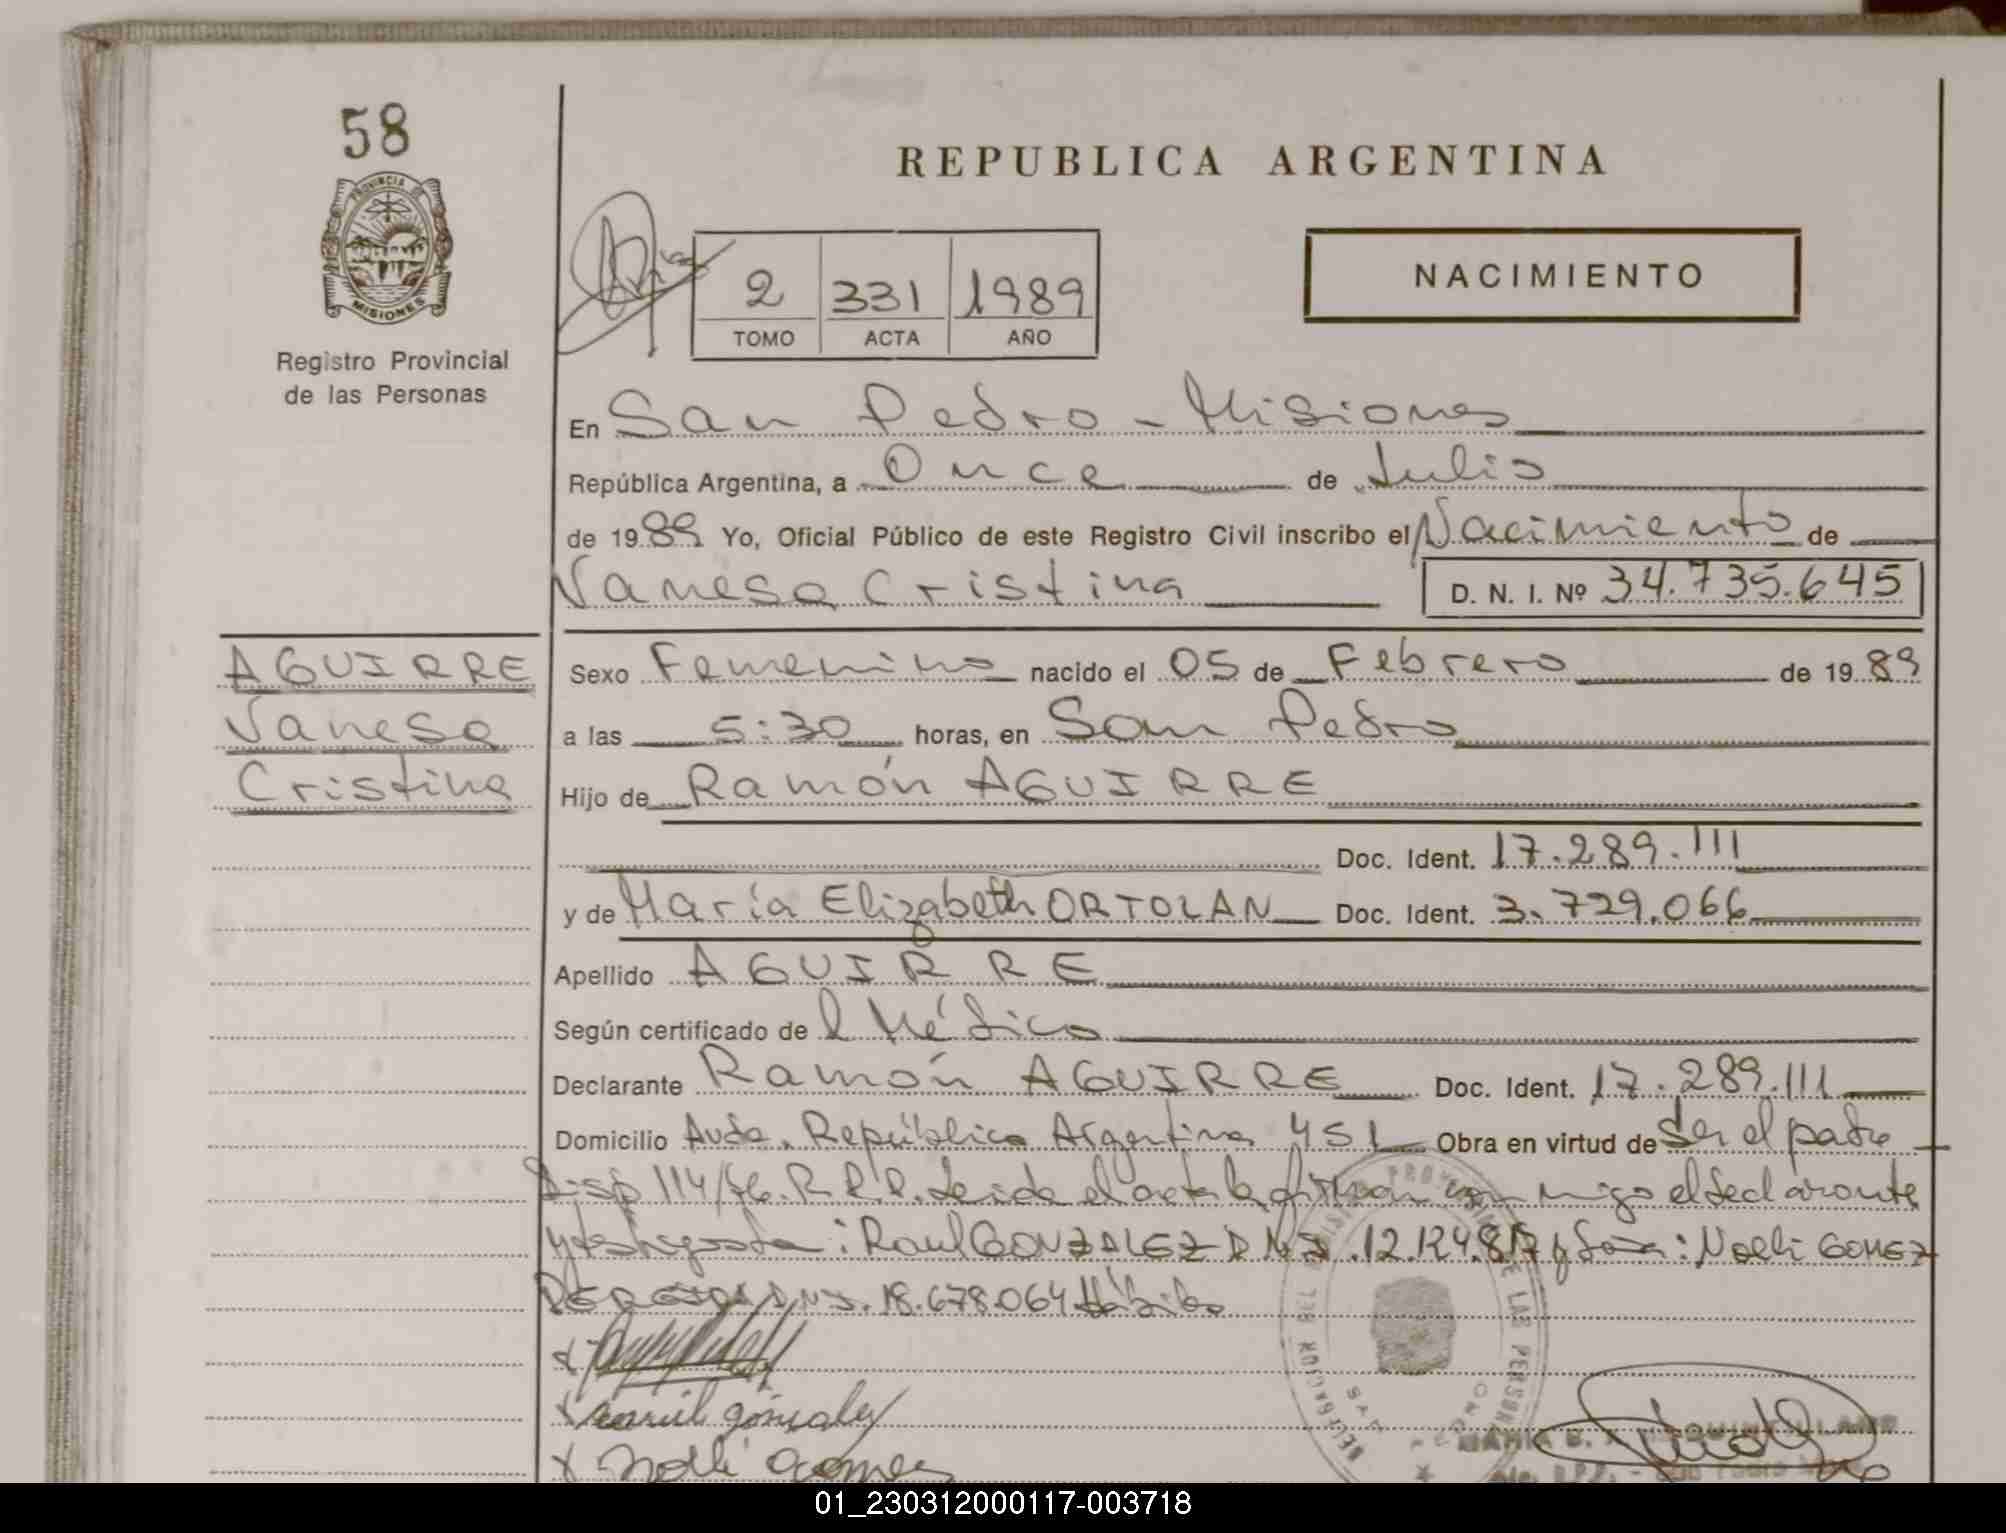 58
REPUBLICA ARGENTINA
PROVINCIA DE
MISIONES
Registro Provincial
de las Personas
2 331 1989
TOMO ACTA AÑO
NACIMIENTO
En San Pedro - Misiones
República Argentina, a Once de Julio
de 1989 Yo, Oficial Público de este Registro Civil inscribo el Nacimiento de
Vanesa Cristina D. N. I. Nº 34.735.645
AGUIRRE
Vanesa
Cristina
Sexo Femenino nacido el 05 de Febrero de 1989
a las 5:30 horas, en San Pedro
Hijo de Ramón AGUIRRE
Doc. Ident. 17.289.111
y de María Elizabeth ORTOLAN Doc. Ident. 3.729.066
Apellido AGUIRRE
Según certificado de l Médico
Declarante Ramón AGUIRRE Doc. Ident. 17.289.111
Domicilio Avda. República Argentina 451 Obra en virtud de Ser el padre
Disp 114/76. R.P.P. Leida el acta la firman conmigo el declarante
y testigos: Raul GONZALEZ D.N.I. 12.124.817 y Doña: Noelli GOMEZ
PEREIRA D.N.I. 18.678.064 Hábiles
x
x raul gonzalez
x Nolli Gomes
01_230312000117-003718